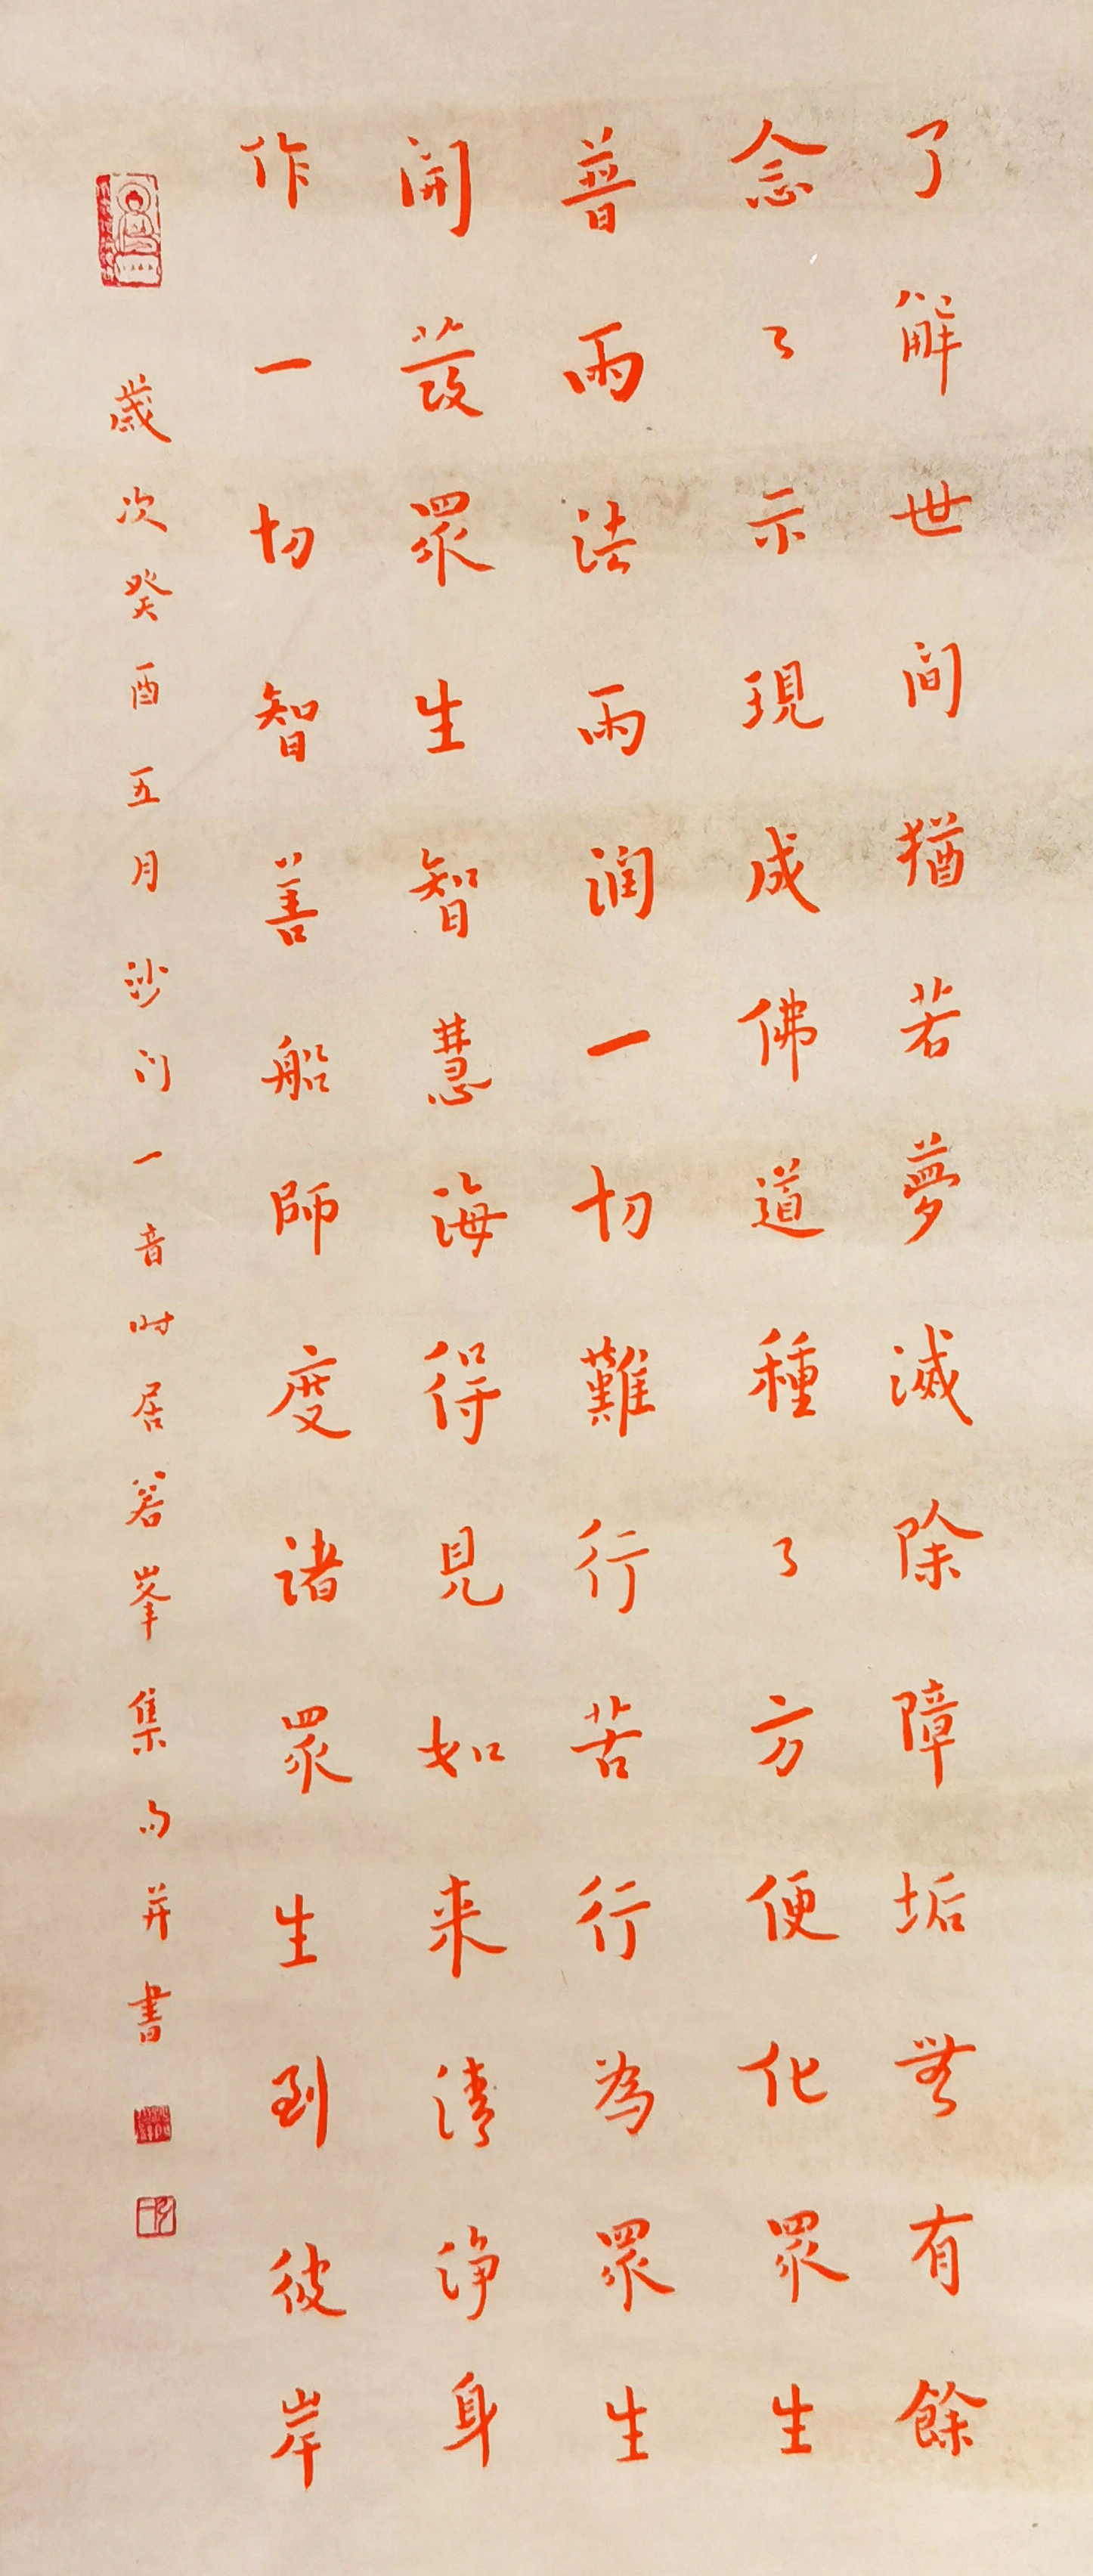 了解世间猶若夢滅除障垢無有餘
念々示現成佛道種々方便化眾生
普雨法雨润一切難行苦行為眾生
開發眾生智慧海得見如来清净身
作一切智善船師度諸眾生到彼岸
歲次癸酉五月沙门一音时居若峯集句并書